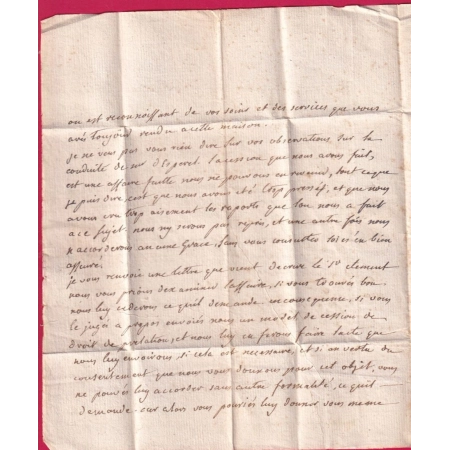 on est reconnoissant de vos soins et des services que vous
avés toujour rendu a cette maison.
je ne veus pas vous rien dire sur vos observations sur la
conduite de mr la cession que nous avons fait,
est une affaire faitte nous ne pouvons en revenir, tout ceque
je puis dire c'est que nous avons eté trop pressés, et que nous
avons cru trop aisement les raports que l'on nous a fait
a ce sujet nous ny serons pas repris, et une autre fois nous
n'accorderons aucune Grace, sans vous consulter soiés en bien
assurés
je vous renvoie une lettre que vient decrire le Sr clement
nous vous prions dexaminer laffaire, si vous trouvés bon
nous luy cederons ce quil demande en consequence, si vous
le jugés a propos envoiés nous un model de cession de
Droit de prelation, et nous luy en ferons faire lacte que
nous luy envoirons, si cela est necessaire, et si en vertu du
consentement que nous vous donnons pour cet objet, vous
ne pouvés luy accorder sans autre formalité, ce quil
demande. car alors vous pouriés luy donner vous meme